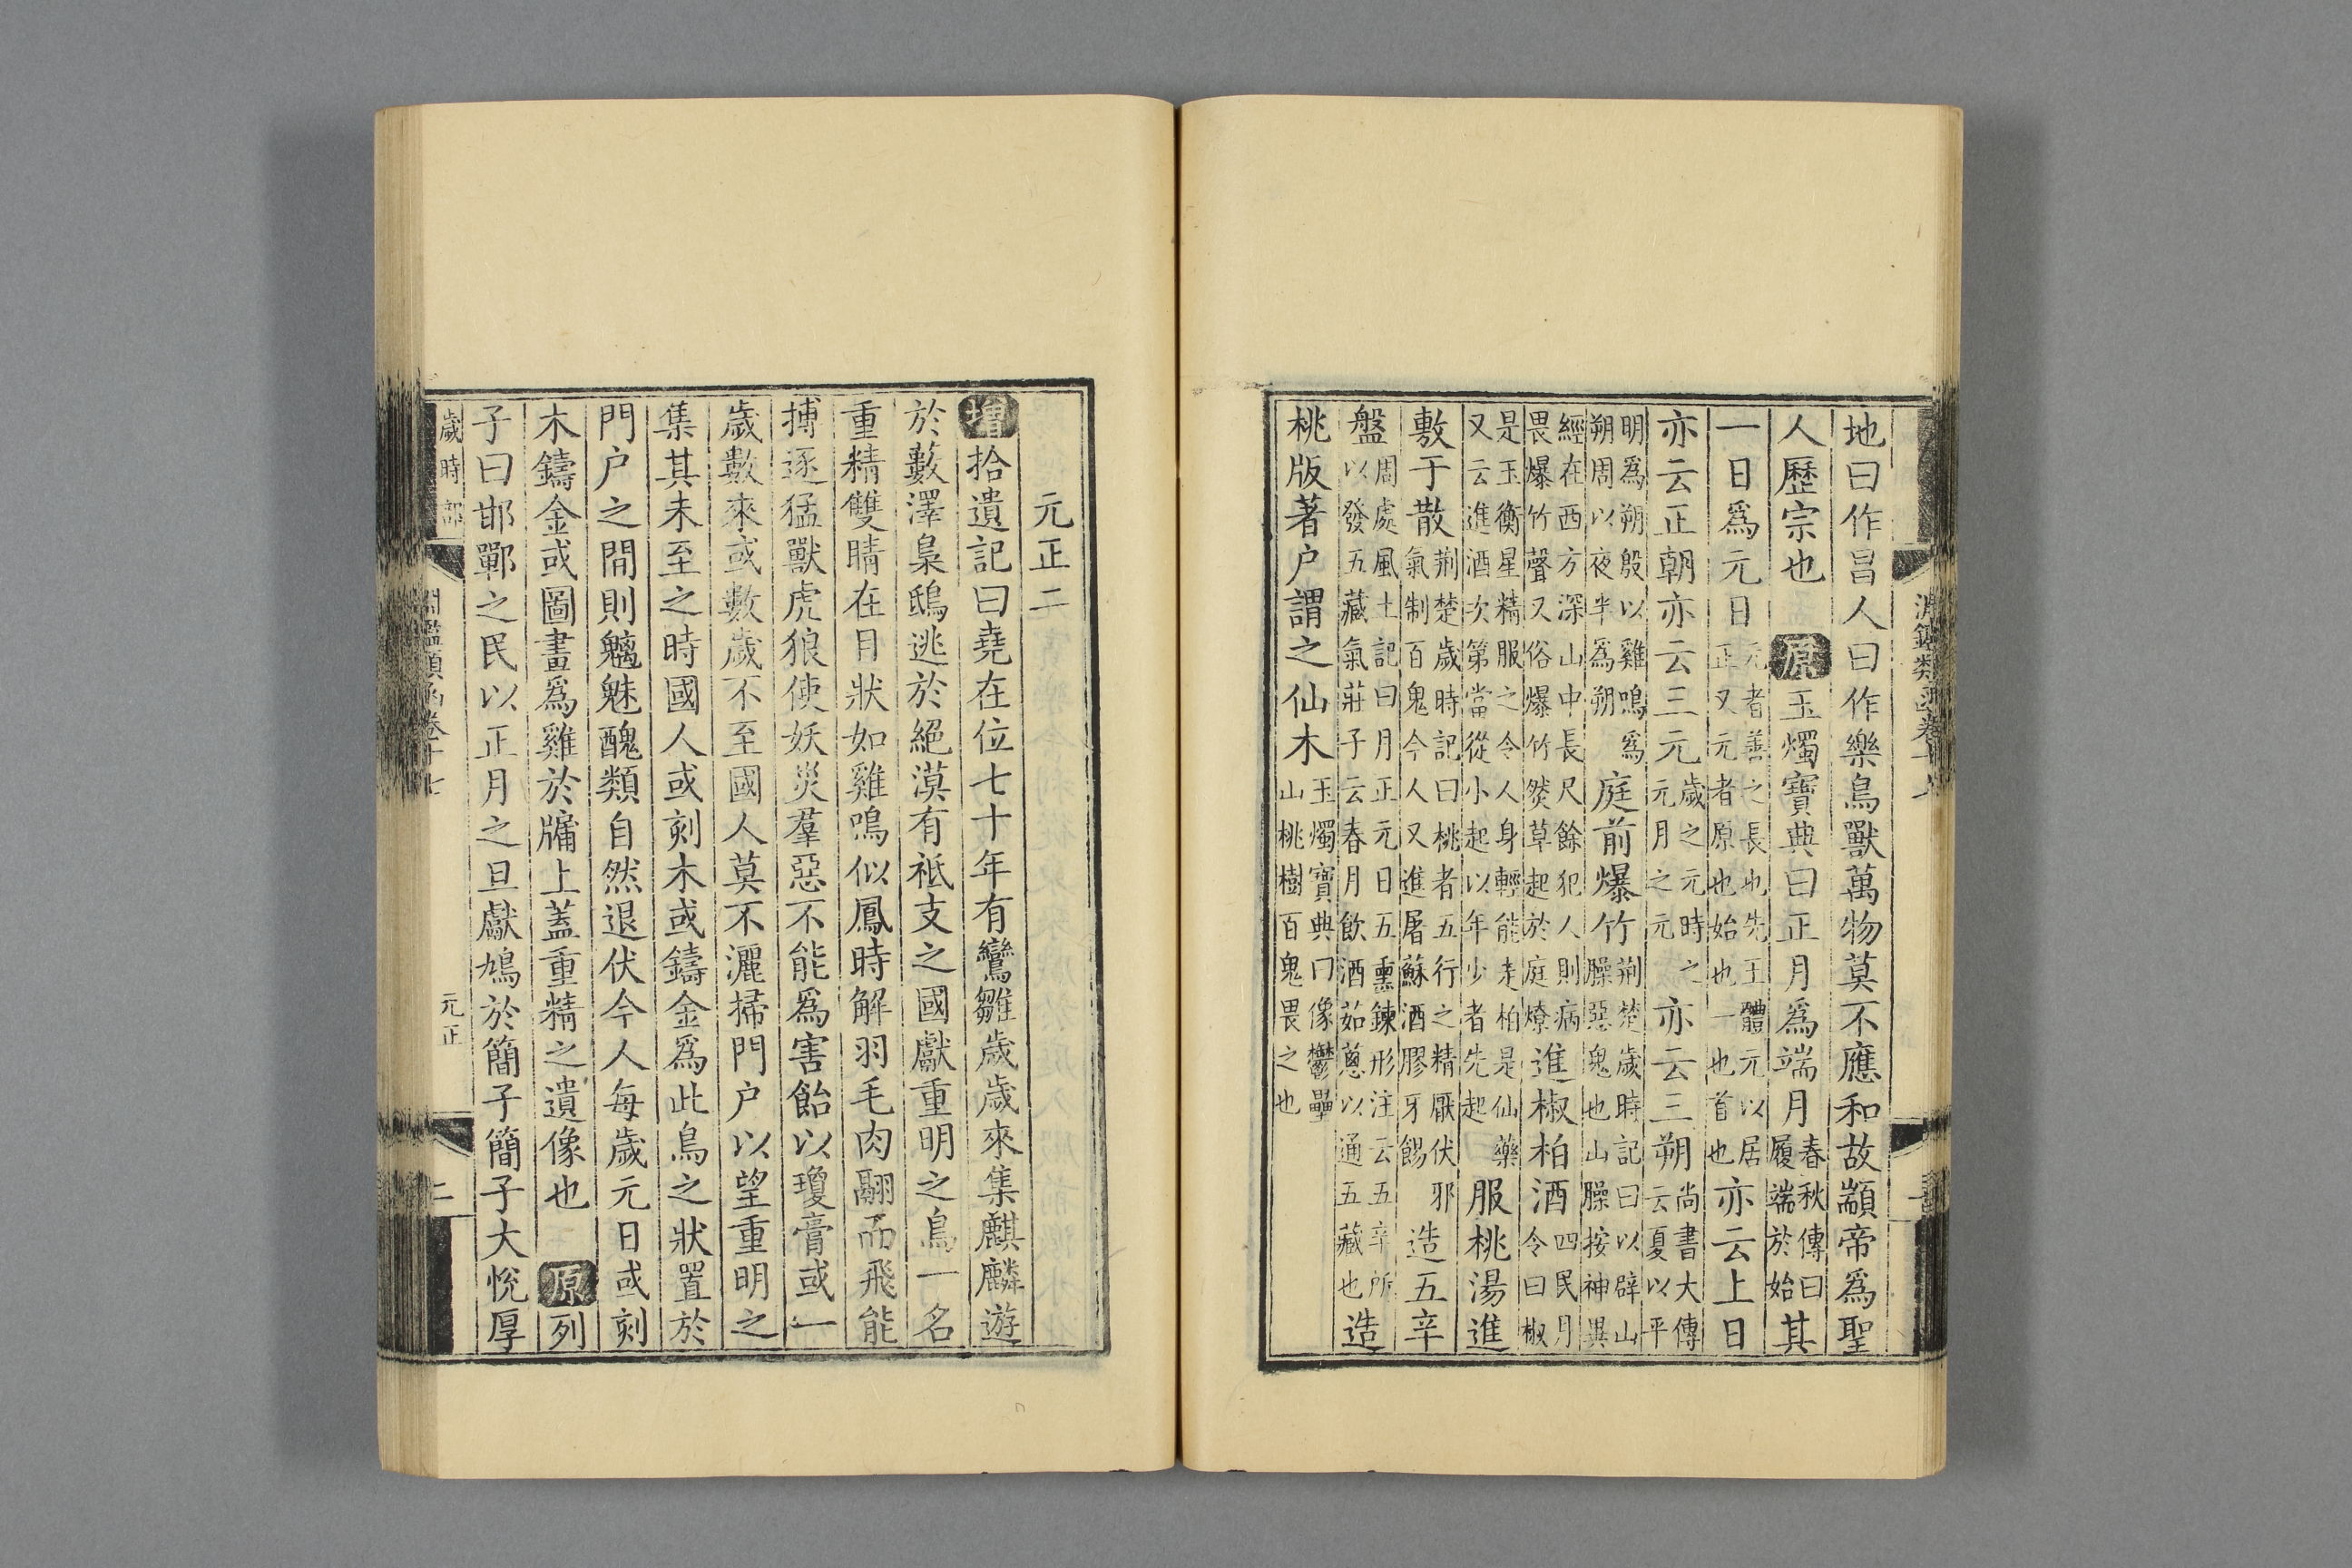 地曰作昌人曰作樂鳥獸萬物莫不應和故顓帝爲聖
人歷宗也原玉燭寶典曰正月爲端月春秋傳曰履端於始其
一日爲元日元者善之長也先王體元以居正又元者原也始也一也首也亦云上日
亦云正朝亦云三元歲之元時之元月之元亦云三朔尚書大傳云夏以平
明爲朔殷以雞鳴爲朔周以夜半爲朔庭前爆竹荆楚歲時記曰以辟山臊惡鬼也山臊按神異
經在西方深山中長尺餘犯人則病畏爆竹聲又俗爆竹然草起於庭燎進椒柏酒四民月令曰椒
是玉衡星精服之令人身輕能走柏是仙藥又云進酒次第當從小起以年少者先起服桃湯進
敷于散荆楚歲時記曰桃者五行之精厭伏邪氣制百鬼今人又進屠蘇酒膠牙餳造五辛
盤周處風土記曰月正元日五熏鍊形注云五辛所以發五藏氣莊子云春月飲酒茹蔥以通五藏也造
桃版著户謂之仙木玉燭寶典曰像鬱壘山桃樹百鬼畏之也
元正二
增拾遺記曰堯在位七十年有鸞雛歲歲來集麒麟遊
於藪澤梟鴟逃於絕漠有祗支之國獻重明之鳥一名
重精雙睛在目狀如雞鳴似鳳時解羽毛肉翮而飛能
搏逐猛獸虎狼使妖災羣惡不能爲害飴以瓊膏或一
歲數來或數歲不至國人莫不灑掃門户以望重明之
集其未至之時國人或刻木或鑄金爲此鳥之狀置於
門户之間則魑魅醜類自然退伏今人每歲元日或刻
木鑄金或圖畫爲雞於牖上蓋重精之遺像也原列
子曰邯鄲之民以正月之旦獻鳩於簡子簡子大悅厚
歲時部
鑑類函卷十七
元正
二